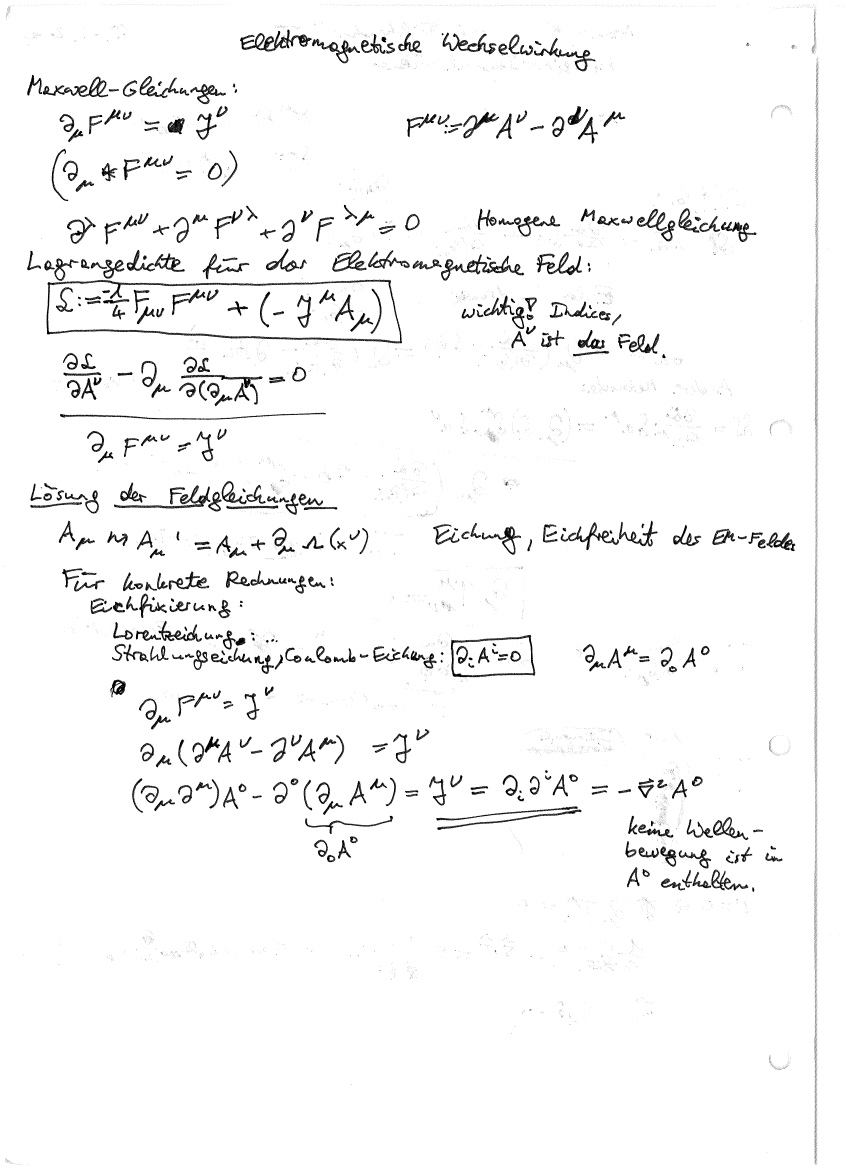 Elektromagnetische Wechselwirkung
Maxwell-Gleichungen:
∂_μ F^{μν} = J^ν F^{μν} := ∂^μ A^ν − ∂^ν A^μ
(∂_μ *F^{μν} = 0)
∂^λ F^{μν} + ∂^μ F^{νλ} + ∂^ν F^{λμ} = 0 Homogene Maxwellgleichung
Lagrangedichte für das Elektromagnetische Feld:
ℒ := -1/4 F_{μν} F^{μν} + (− J^μ A_μ) wichtig! Indices,
A^ν ist das Feld.
∂ℒ/∂A^ν − ∂_μ ∂ℒ/∂(∂_μ A^ν) = 0
∂_μ F^{μν} = J^ν
Lösung der Feldgleichungen
A_μ ↝ A_μ' = A_μ + ∂_μ Λ(x^ν) Eichung, Eichfreiheit des EM-Feldes
Für konkrete Rechnungen:
Eichfixierung:
Lorentzeichung: ...
Strahlungseichung, Coulomb-Eichung: ∂_i A^i = 0 ∂_μ A^μ = ∂_0 A^0
∂_μ F^{μν} = J^ν
∂_μ (∂^μ A^ν − ∂^ν A^μ) = J^ν
(∂_μ ∂^μ) A^0 − ∂^0 (∂_μ A^μ) = J^ν = ∂_i ∂^i A^0 = − ∇⃗² A^0
∂_0 A^0
keine Wellen-
bewegung ist in
A^0 enthalten.